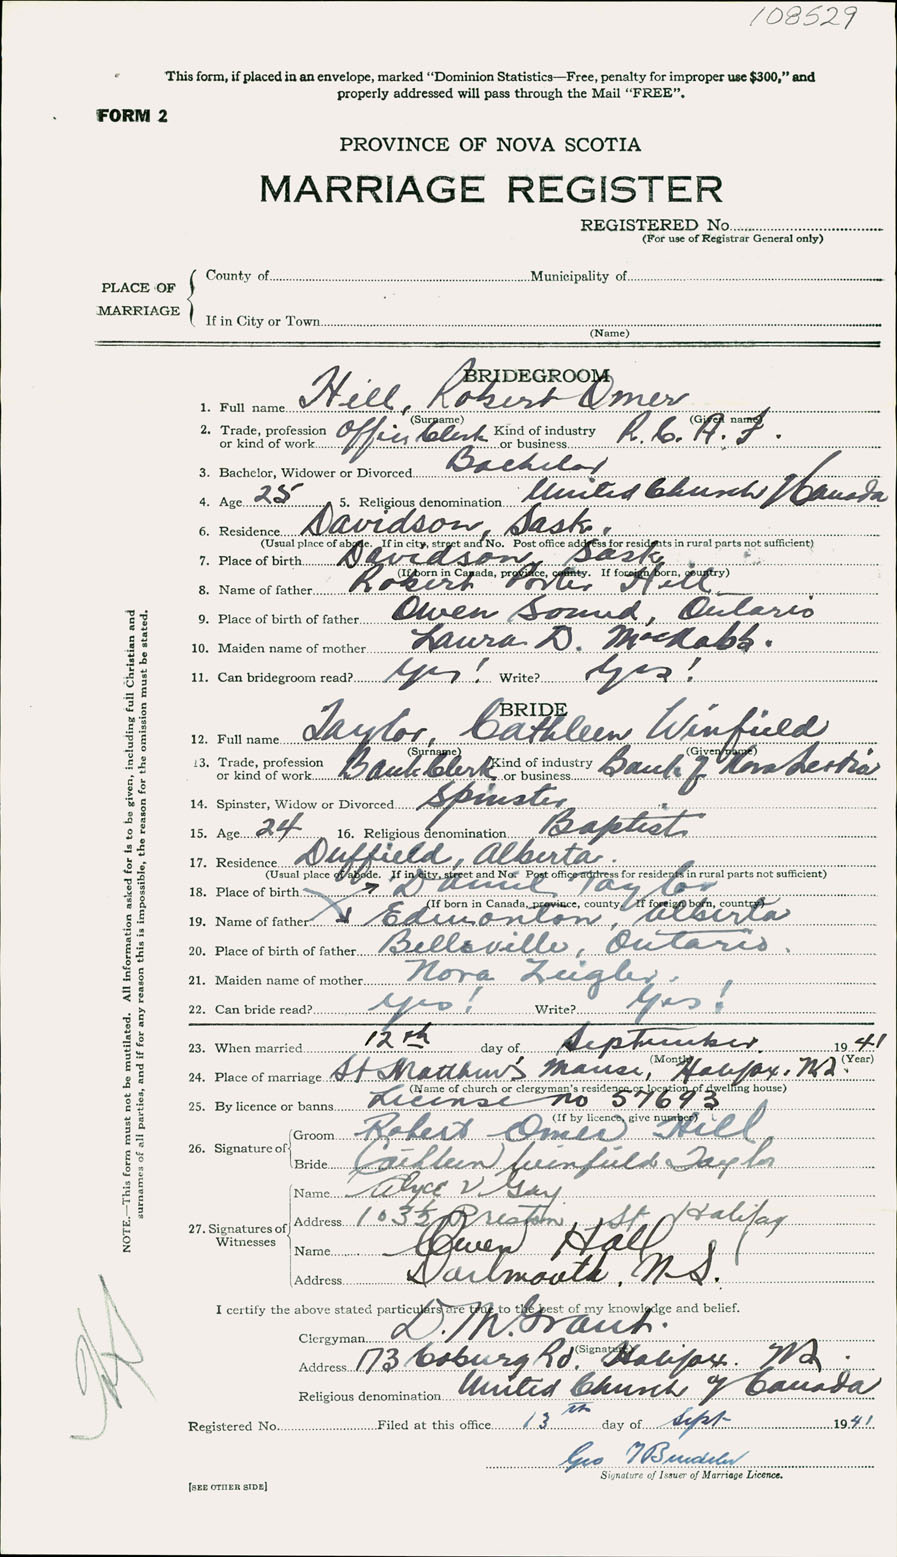 108529
This form, if placed in an envelope, marked "Dominion Statistics—Free, penalty for improper use $300," and
properly addressed will pass through the Mail "FREE".
FORM 2
PROVINCE OF NOVA SCOTIA
MARRIAGE REGISTER
REGISTERED No.
(For use of Registrar General only)
PLACE OF MARRIAGE
County of Municipality of
If in City or Town
(Name)
BRIDEGROOM
1. Full name Hill, Robert Omer
(Surname) (Given name)
2. Trade, profession or kind of work Office Clerk Kind of industry or business R. C. A. F.
3. Bachelor, Widower or Divorced Bachelor
4. Age 25 5. Religious denomination United Church of Canada
6. Residence Davidson, Sask.
(Usual place of abode. If in city, street and No. Post office address for residents in rural parts not sufficient)
7. Place of birth Davidson, Sask.
(If born in Canada, province, county. If foreign born, country)
8. Name of father Robert Hill
9. Place of birth of father Owen Sound, Ontario
10. Maiden name of mother Laura D.
11. Can bridegroom read? Yes! Write? Yes!
BRIDE
12. Full name Taylor, Cathleen Winfield
(Surname) (Given name)
13. Trade, profession or kind of work Bank Clerk Kind of industry or business Bank of Nova Scotia
14. Spinster, Widow or Divorced Spinster
15. Age 24 16. Religious denomination Baptist
17. Residence Duffield, Alberta.
(Usual place of abode. If in city, street and No. Post office address for residents in rural parts not sufficient)
18. Place of birth Daniel Taylor
(If born in Canada, province, county. If foreign born, country)
19. Name of father Edmonton, Alberta
20. Place of birth of father Belleville, Ontario.
21. Maiden name of mother Nora Zeigler.
22. Can bride read? Yes! Write? Yes!
23. When married 12th day of September 1941
(Month) (Year)
24. Place of marriage St Matthew's Manse, Halifax. N.S.
(Name of church or clergyman's residence or location of dwelling house)
25. By licence or banns License no 57693
(If by licence, give number)
26. Signature of
Groom Robert Omer Hill
Bride Cathleen Winfield Taylor
27. Signatures of Witnesses
Name Alyce V Gay
Address 103½ Preston St Halifax
Name Owen Hall
Address Dartmouth, N.S.
I certify the above stated particulars are true to the best of my knowledge and belief.
Clergyman D. M. Grant.
(Signature)
Address 173 Coburg Rd. Halifax. N.S.
Religious denomination United Church of Canada
Registered No. Filed at this office 13th day of Sept 1941
Geo
Signature of Issuer of Marriage Licence.
[SEE OTHER SIDE]
NOTE.—This form must not be mutilated. All information asked for is to be given, including full Christian and
surnames of all parties, and if for any reason this is impossible, the reason for the omission must be stated.